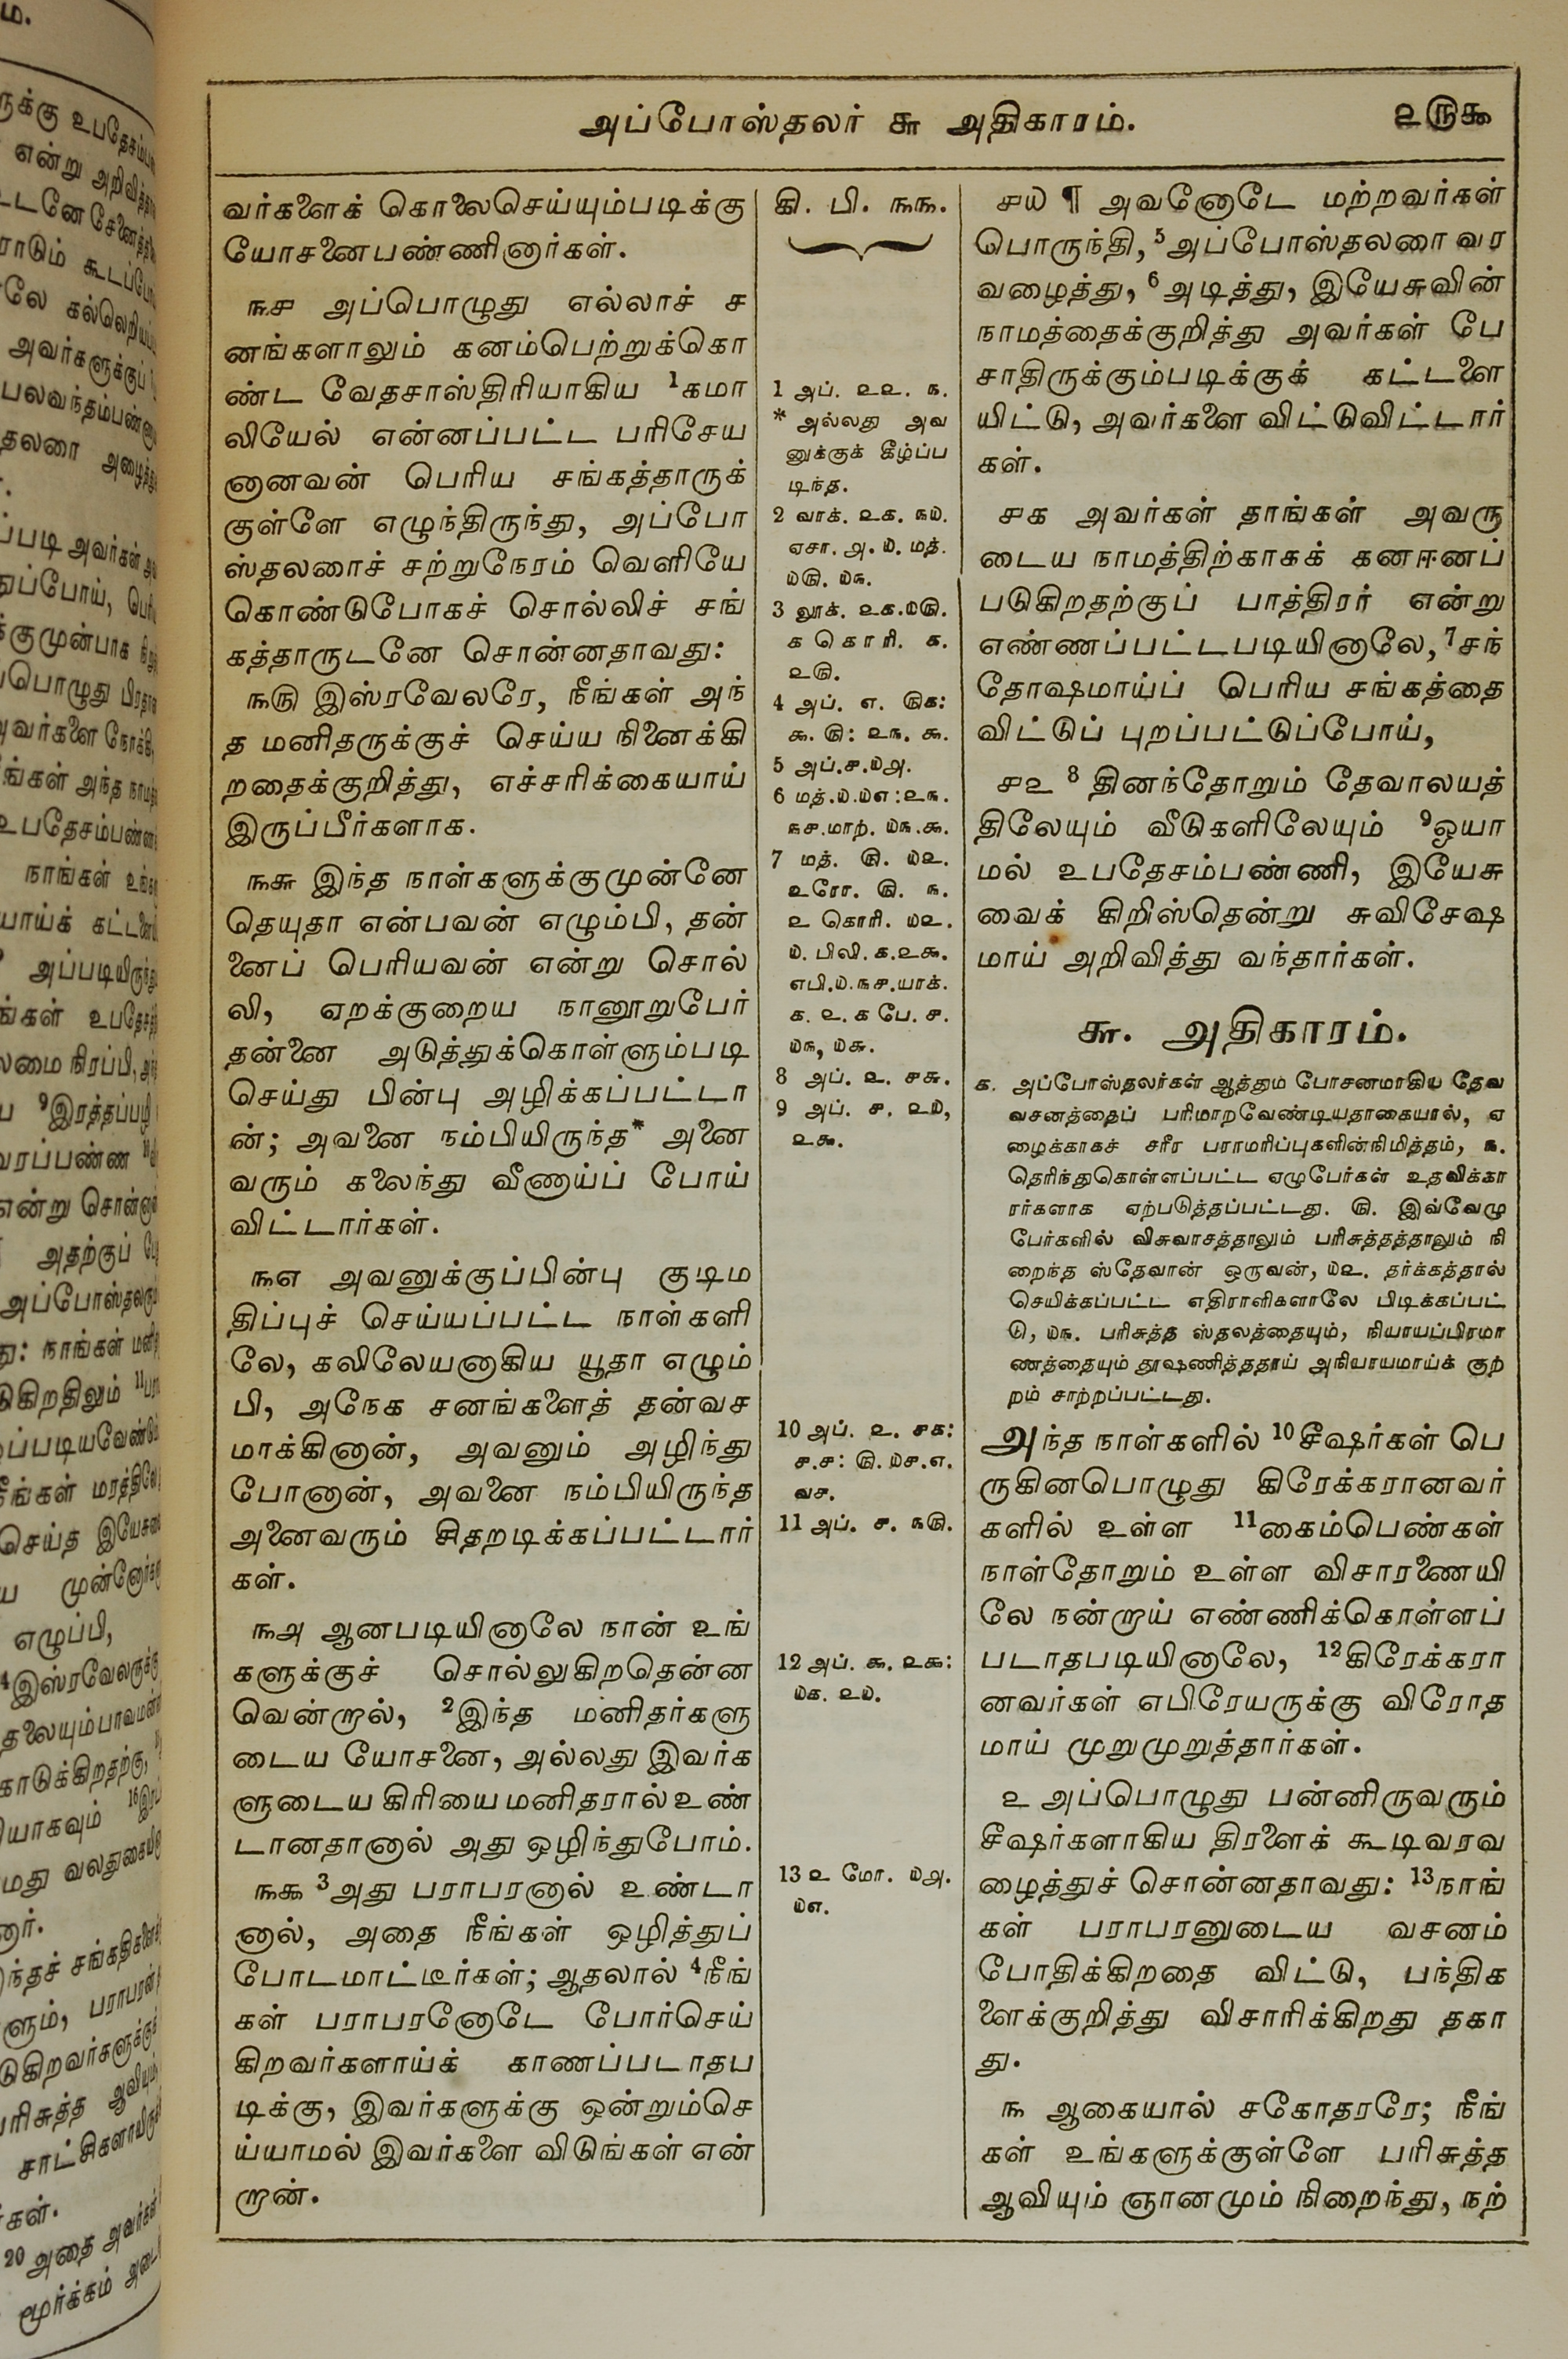 அப்போஸ்தலர் ௬ அதிகாரம்.
௨௫௯
வர்களைக் கொலைசெய்யும்படிக்கு
யோசனைபண்ணினார்கள்.
௩௪ அப்பொழுது எல்லாச் ச
னங்களாலும் கனம்பெற்றுக்கொ
ண்ட வேதசாஸ்திரியாகிய 1கமா
லியேல் என்னப்பட்ட பரிசேய
னானவன் பெரிய சங்கத்தாருக்
குள்ளே எழுந்திருந்து, அப்போ
ஸ்தலரைச் சற்றுநேரம் வெளியே
கொண்டுபோகச் சொல்லிச் சங்
கத்தாருடனே சொன்னதாவது:
௩௫ இஸ்ரவேலரே, நீங்கள் அந்
த மனிதருக்குச் செய்ய நினைக்கி
றதைக்குறித்து, எச்சரிக்கையாய்
இருப்பீர்களாக.
௩௬ இந்த நாள்களுக்குமுன்னே
தெயுதா என்பவன் எழும்பி, தன்
னைப் பெரியவன் என்று சொல்
லி, ஏறக்குறைய நானூறுபேர்
தன்னை அடுத்துக்கொள்ளும்படி
செய்து பின்பு அழிக்கப்பட்டா
ன்; அவனை நம்பியிருந்த* அனை
வரும் கலைந்து வீணாய்ப் போய்
விட்டார்கள்.
௩௭ அவனுக்குப்பின்பு குடிம
திப்புச் செய்யப்பட்ட நாள்களி
லே, கலிலேயனாகிய யூதா எழும்
பி, அநேக சனங்களைத் தன்வச
மாக்கினான், அவனும் அழிந்து
போனான், அவனை நம்பியிருந்த
அனைவரும் சிதறடிக்கப்பட்டார்
கள்.
௩௮ ஆனபடியினாலே நான் உங்
களுக்குச் சொல்லுகிறதென்ன
வென்றால், 2இந்த மனிதர்களு
டைய யோசனை, அல்லது இவர்க
ளுடைய கிரியை மனிதரால் உண்
டானதானால் அது ஒழிந்துபோம்.
௩௯ 3அது பராபரனால் உண்டா
னால், அதை நீங்கள் ஒழித்துப்
போடமாட்டீர்கள்; ஆதலால் 4நீங்
கள் பராபரனோடே போர்செய்
கிறவர்களாய்க் காணப்படாதப
டிக்கு, இவர்களுக்கு ஒன்றும்செ
ய்யாமல் இவர்களை விடுங்கள் என்
றான்.
கி. பி. ௩௩.
1 அப். ௨௨. ௩.
* அல்லது அவ
னுக்குக் கீழ்ப்ப
டிந்த.
2 வாக். ௨௧. ௩௰.
ஏசா. ௮. ௰. மத்.
௰௫. ௰௩.
3 லூக். ௨௧.௰௫.
௧ கொரி. ௧.
௨௫.
4 அப். ௭. ௫௧:
௯. ௫: ௨௩. ௯.
5 அப்.௪.௰௮.
6 மத்.௰.௰௭:௨௩.
௩௪.மாற். ௰௩.௯.
7 மத். ௫. ௰௨.
உரோ. ௫. ௩.
௨ கொரி. ௰௨.
௰. பிலி.௧.௨௯.
எபி.௰.௩௪.யாக்.
௧. ௨. ௧ பே. ௪.
௰௩, ௰௬.
8 அப். ௨. ௪௬.
9 அப். ௪. ௨௰,
௨௯.
10 அப். ௨. ௪௧:
௪.௪: ௫. ௰௪.௭.
வச.
11 அப். ௪. ௩௫.
12 அப். ௯. ௨௯:
௰௧. ௨௰.
13 ௨ மோ. ௰௮.
௰௭.
௪௰ ¶ அவனோடே மற்றவர்கள்
பொருந்தி, 5அப்போஸ்தலரை வர
வழைத்து, 6அடித்து, இயேசுவின்
நாமத்தைக்குறித்து அவர்கள் பே
சாதிருக்கும்படிக்குக் கட்டளை
யிட்டு, அவர்களை விட்டுவிட்டார்
கள்.
௪௧ அவர்கள் தாங்கள் அவரு
டைய நாமத்திற்காகக் கனஈனப்
படுகிறதற்குப் பாத்திரர் என்று
எண்ணப்பட்டபடியினாலே, 7சந்
தோஷமாய்ப் பெரிய சங்கத்தை
விட்டுப் புறப்பட்டுப்போய்,
௪௨ 8 தினந்தோறும் தேவாலயத்
திலேயும் வீடுகளிலேயும் 9ஓயா
மல் உபதேசம்பண்ணி, இயேசு
வைக் கிறிஸ்தென்று சுவிசேஷ
மாய் அறிவித்து வந்தார்கள்.
௬. அதிகாரம்.
௧. அப்போஸ்தலர்கள் ஆத்தும போசனமாகிய தேவ
வசனத்தைப் பரிமாறவேண்டியதாகையால், ஏ
ழைக்காகச் சரீர பராமரிப்புகளினிமித்தம், ௩.
தெரிந்துகொள்ளப்பட்ட ஏழுபேர்கள் உதவிக்கா
ரர்களாக ஏற்படுத்தப்பட்டது. ௫. இவ்வேழு
பேர்களில் விசுவாசத்தாலும் பரிசுத்தத்தாலும் நி
றைந்த ஸ்தேவான் ஒருவன், ௰௨. தர்க்கத்தால்
செயிக்கப்பட்ட எதிராளிகளாலே பிடிக்கப்பட்
டு, ௰௩. பரிசுத்த ஸ்தலத்தையும், நியாயப்பிரமா
ணத்தையும் தூஷணித்ததாய் அநியாயமாய்க் குற்
றம் சாற்றப்பட்டது.
அந்த நாள்களில் 10சீஷர்கள் பெ
ருகினபொழுது கிரேக்கரானவர்
களில் உள்ள 11கைம்பெண்கள்
நாள்தோறும் உள்ள விசாரணையி
லே நன்றாய் எண்ணிக்கொள்ளப்
படாதபடியினாலே, 12கிரேக்கரா
னவர்கள் எபிரேயருக்கு விரோத
மாய் முறுமுறுத்தார்கள்.
௨ அப்பொழுது பன்னிருவரும்
சீஷர்களாகிய திரளைக் கூடிவரவ
ழைத்துச் சொன்னதாவது: 13நாங்
கள் பராபரனுடைய வசனம்
போதிக்கிறதை விட்டு, பந்திக
ளைக்குறித்து விசாரிக்கிறது தகா
து.
௩ ஆகையால் சகோதரரே; நீங்
கள் உங்களுக்குள்ளே பரிசுத்த
ஆவியும் ஞானமும் நிறைந்து, நற்